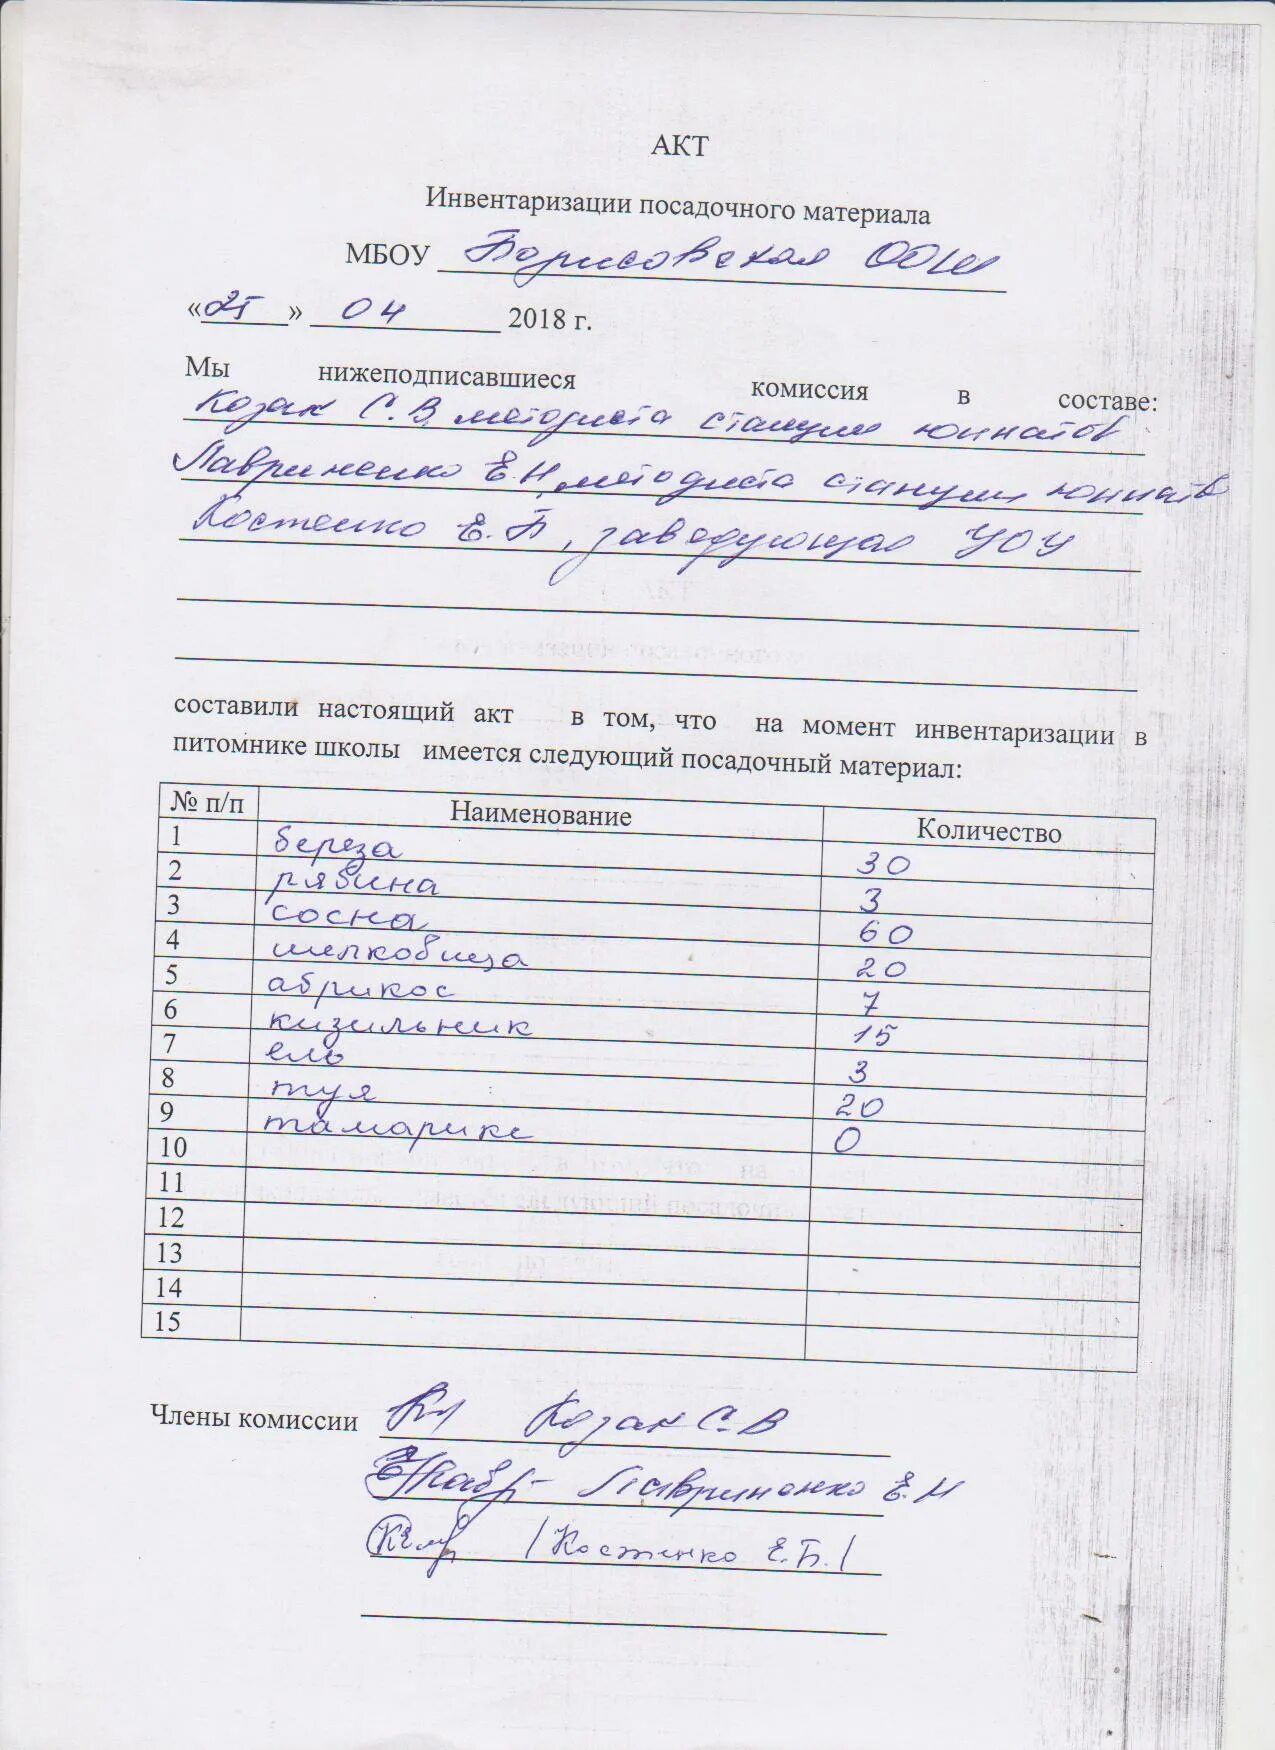 АКТ
Инвентаризации посадочного материала
МБОУ Борисовская ООШ
«25» 04 2018 г.
Мы нижеподписавшиеся комиссия в составе:
Козак С.В. методиста станции юннатов
Лавриненко Е.Н, методиста станции юннатов
Костенко Е.Б, заведующая УОУ
составили настоящий акт в том, что на момент инвентаризации в
питомнике школы имеется следующий посадочный материал:
№ п/п Наименование Количество
1 береза 30
2 рябина 3
3 сосна 60
4 шелковица 20
5 абрикос 7
6 кизильник 15
7 ель 3
8 туя 20
9 тамарикс 0
10
11
12
13
14
15
Члены комиссии Козак С.В
Лавриненко Е.Н
/Костенко Е.Б./